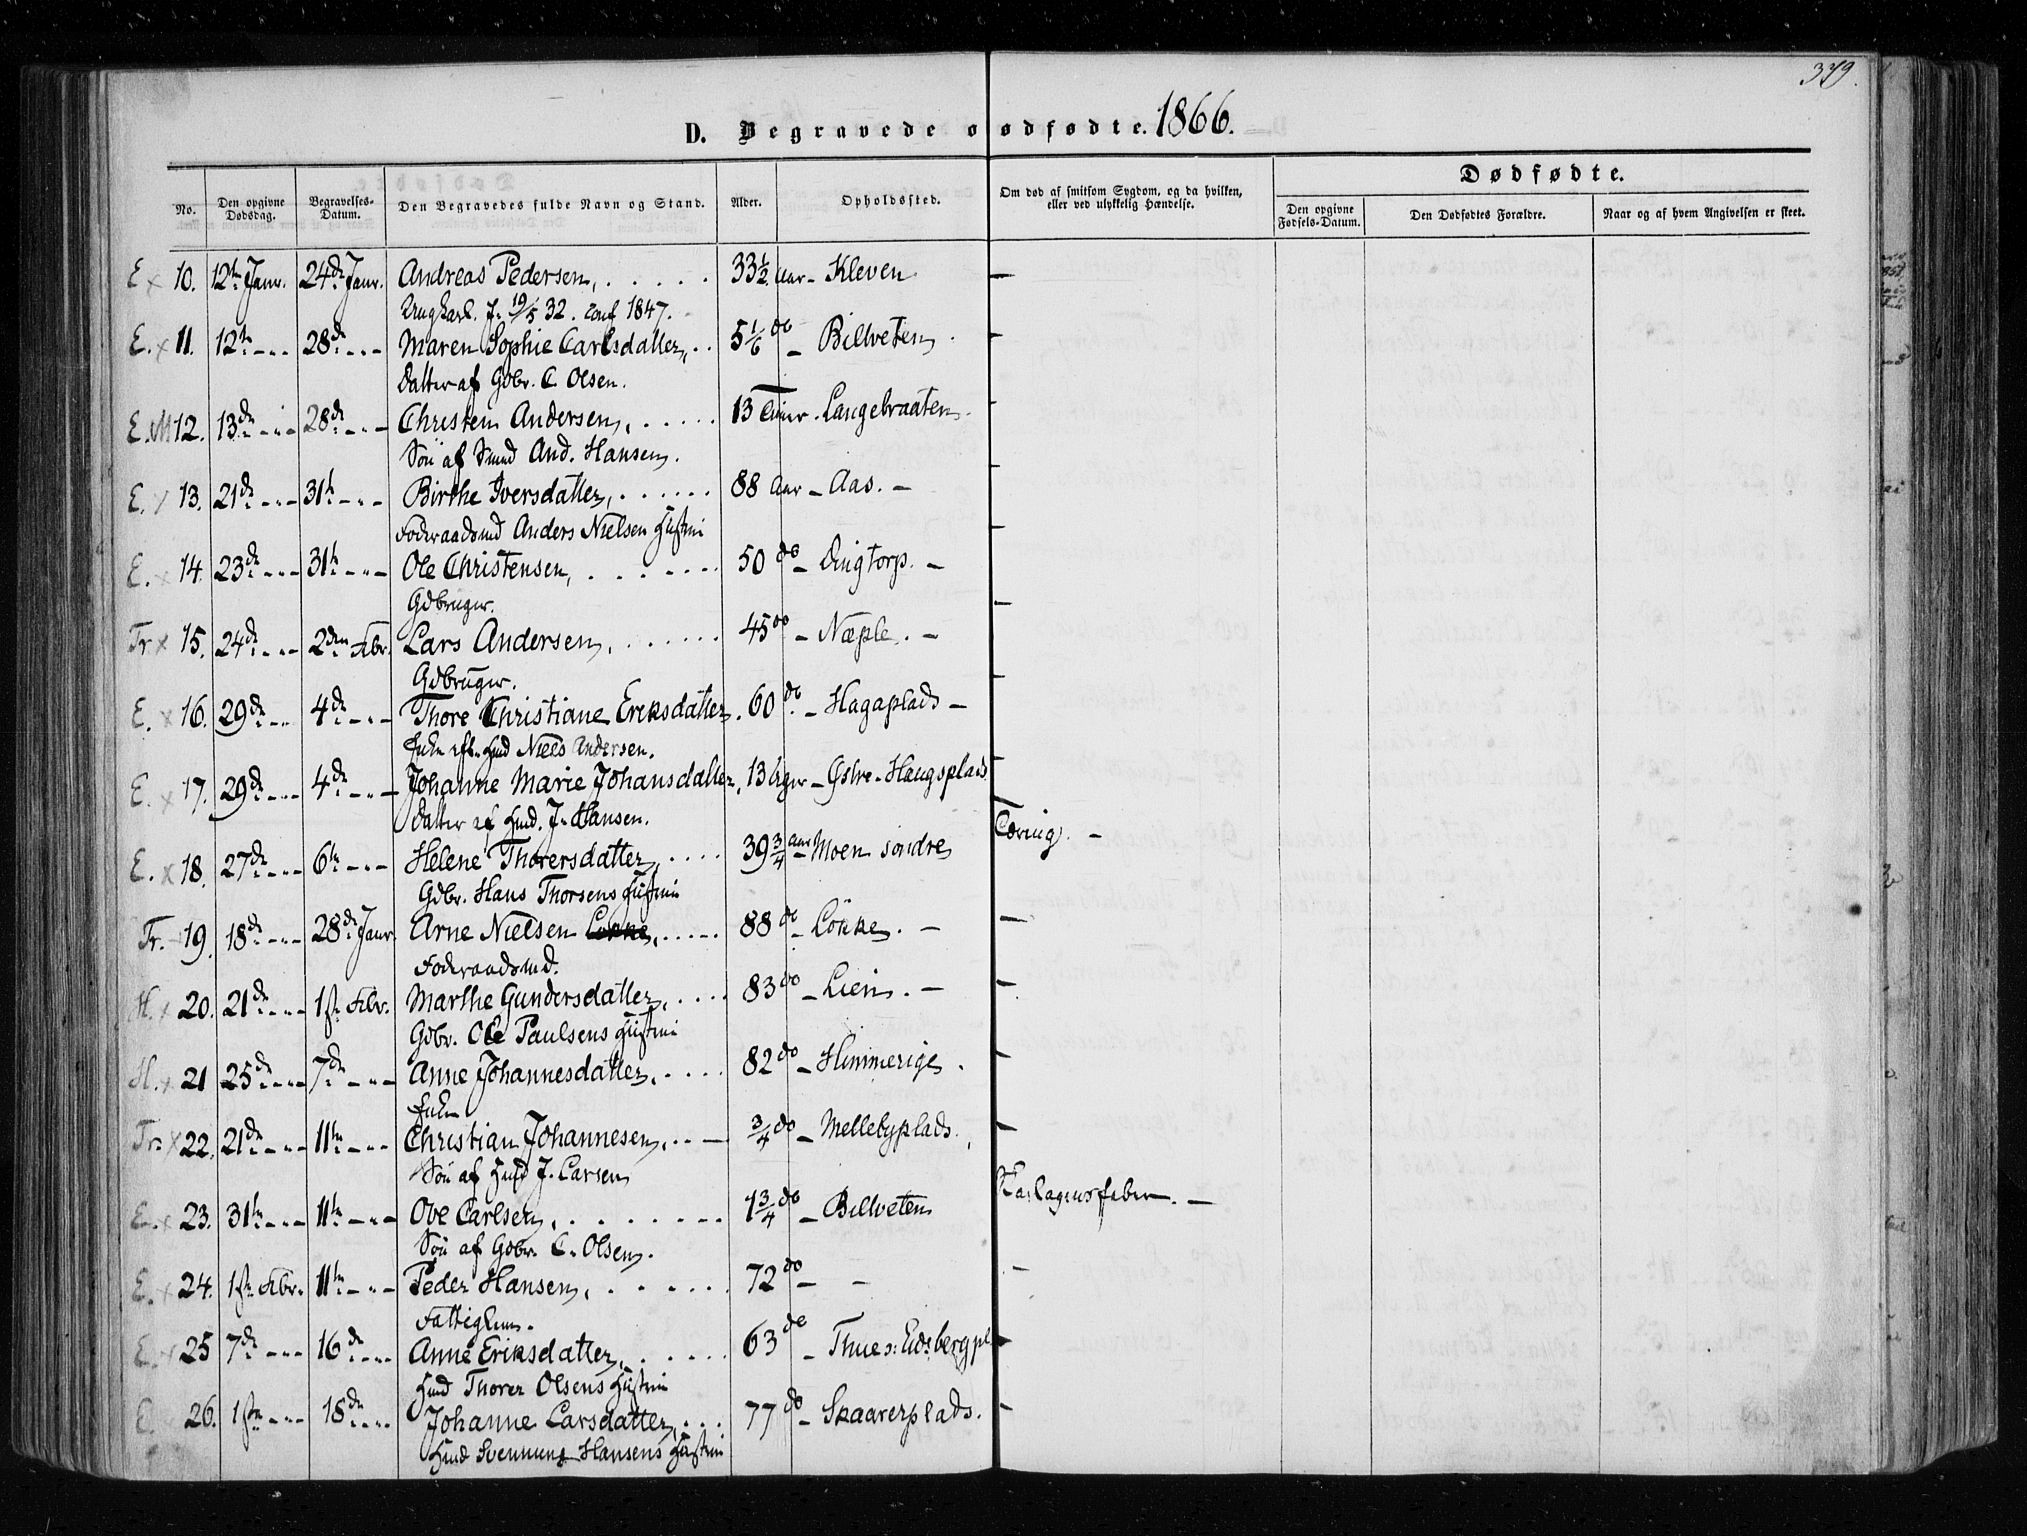 379.
D. Begravede o    ødfødte. 1866.
No. Den opgivne Dødsdag. Begravelses-Datum. Den Begravedes fulde Navn og Stand. Alder. Opholdssted. Om død af smitsom Sygdom, og da hvilken, eller ved ulykkelig Hændelse. Dødfødte.
Den opgivne Fødsels-Datum. Den Dødfødtes Forældre. Naar og af hvem Angivelsen er skeet.
E x 10. 12te Janr. 24de Janr. Andreas Pedersen, . . . . . 33 1/2 Aar - Kleven -
Ungkarl. f. 19/5 32. conf 1847.
E. x 11. 12te - - - 28de - - - Maren Sophie Carlsdatter, . . 5 1/6 do - Billveten . -
Datter af Gdbr. C. Olsen.
E. M 12. 13de - - - 28de - - - Christen Andersen, . . . . . 13 Timer - Langebraaten . -
Søn af And. Hansen.
E. x 13. 21de - - - 31te - - - Birthe Iversdatter, . . . . . . 88 Aar - Aas. - -
Foderaadsmd Anders Nielsen Hustru
E. x 14. 23de - - - 31te - - - Ole Christensen, . . . . . . 50 do - Dingtorp. - -
Gdbruger.
Tr x 15. 24de - - - 2den Febr. Lars Andersen, . . . . . . 45 do - Næple. - -
Gdbruger.
E. x 16. 29de - - 4de - - - Thore Christiane Eriksdatter . 60 do - Hagaplads - -
Enke eft. Hmd Niels Andersen.
E. x 17. 29de - - - 4de - - - Johanne Marie Johansdatter, 13 Uger - Østre-Haugsplads -
Datter af Hmd. J. Hansen.
E. x 18. 27de - - - 6te - - - Helene Thorersdatter, . . . . 39 3/4 Aar - Moen søndre Tæring. -
Gdbr. Hans Thorsens Hustru
Tr. 19. 18de - - - 28de Janr. Arne Nielsen Løkke, . . . . . 88 do - Løkke. - -
Foderaadsmd.
H. x 20. 21de - - - 1ste Febr. Marthe Gundersdatter, . . . . 83 do - Lien. - -
Gdbr. Ole Paulsens Hustru
H. x 21 25de - - - 7de - - - Anne Johannesdatter, . . . . 82 do - Himmerige . -
Enke
Tr. x 22. 21de - - - 11te - - - Christian Johannesen, . . - 3/4 do - Mellebyplads. -
Søn af Hmd J. Larsen
E. x 23. 31te - - - 11te - - - Ove Carlsen, . . . . . . . . 1 3/4 do - Billveten Skarlagensfeber. -
Søn af Gdbr. C. Olsen.
E. x 24. 1ste Febr. 11te - - - Peder Hansen, . . . . . . 72 do - - -
Fattiglem.
E. x 25 7de - - - 16de - - - Anne Eriksdatter, . . . . . 63 do - Thues: Eidsbergpl. -
Hmd Thorer Olsens Hustru
E. 26. 1ste - - - 18de - - - Johanne Larsdatter, . . . 77 do - Skaarerplads. -
Hmd Svennung Hansens Hustru